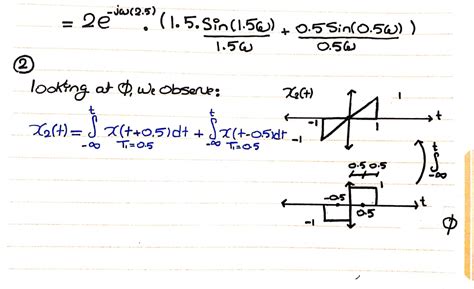 = 2e^-jω(2.5) . (1.5. Sin(1.5ω)/1.5ω + 0.5 Sin(0.5ω)/0.5ω)
②
looking at ϕ, we observe:
x₂(t) = ∫_-∞^t x(t+0.5)dt + ∫_-∞^t x(t-0.5)dt
T₁=0.5 T₁=0.5
x₂(t)
1
-1 1 t
-1
0.5 0.5
∫_-∞^t
-0.5 1
0.5 t
-1
ϕ